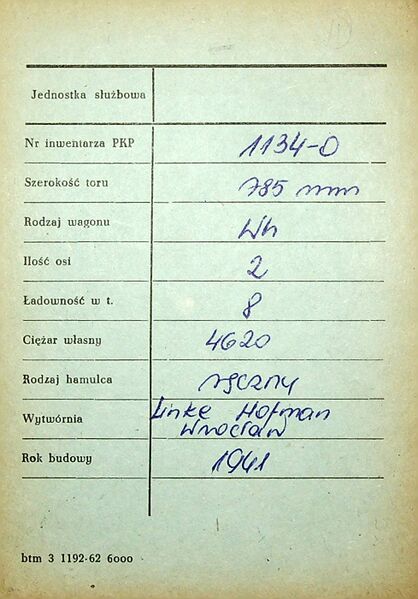 Jednostka służbowa
Nr inwentarza PKP 1134-0
Szerokość toru 785 mm
Rodzaj wagonu Wh
Ilość osi 2
Ładowność w t. 8
Ciężar własny 4620
Rodzaj hamulca ręczny
Wytwórnia Linke Hofman
Wrocław
Rok budowy 1941
btm 3 1192-62 6000